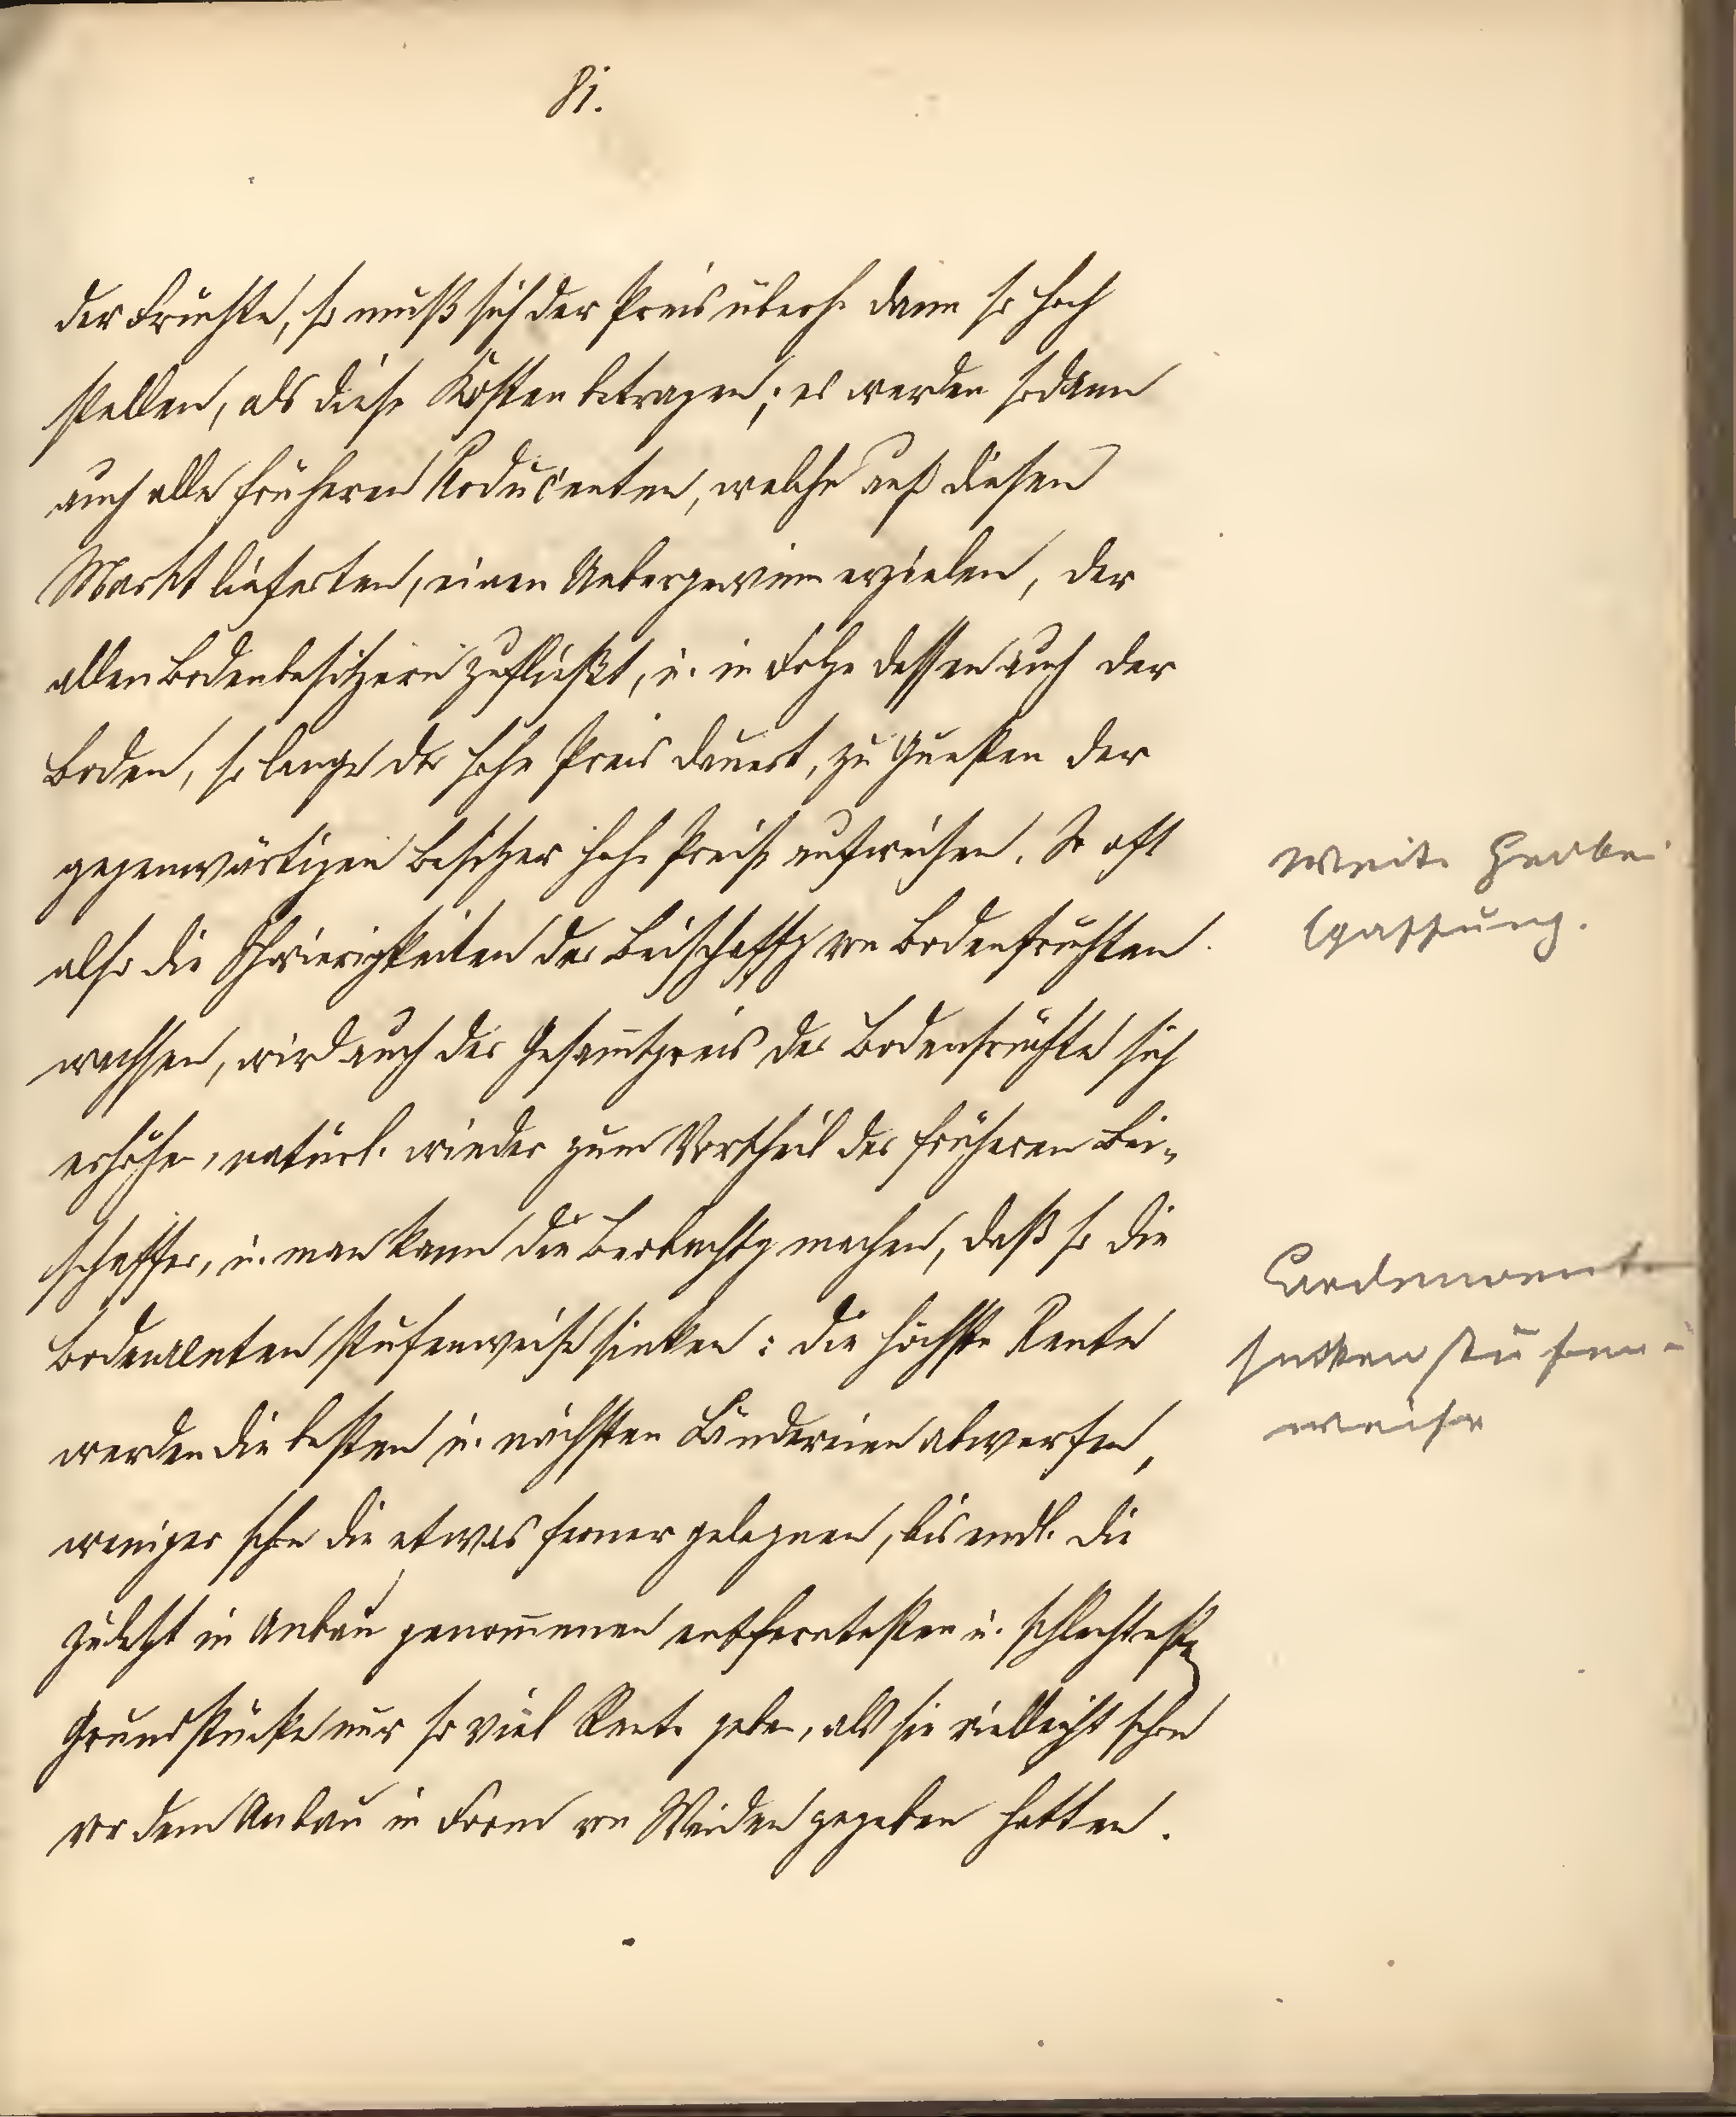 81.
der Früchte, so muß sich der Preis überh. dann so hoch
stellen, als diese Kosten betragen; es werden sodann
auch alle früheren Producenten, welche auf diesen
Markt lieferten, einen Uebergewinn erzielen, der
allen Bodenbesitzern zufließt, u. in Folge dessen auch der
Boden, so lange der hohe Preis dauert, zu Gunsten der
gegenwärtigen Besitzer hohe Preise aufweisen. So oft
also die Schwierigkeiten der Beischaffg von Bodenfrüchten
wachsen, wird auch der Gesam̄tpreis der Bodenfrüchte sich
erhöhen, natürl. wieder zum Vortheil der früheren Bei-
schaffer, u. man kann die Beobachtg machen, daß so die
Bodenrenten stufenweise sinken: die höchste Rente
werden die besten u. nächsten Ländereien abwerfen,
weniger schon die etwas ferner gelegnen, bis endl. die
zuletzt in Anbau genom̄enen entferntesten u. schlechtesten
Grundstücke nur so viel Rente geben, als sie vielleicht schon
vor dem Anbau in Form von Weiden gegeben hatten.
weite Herbei
schaffung.
Bodenrente
sinken stufen-
weise